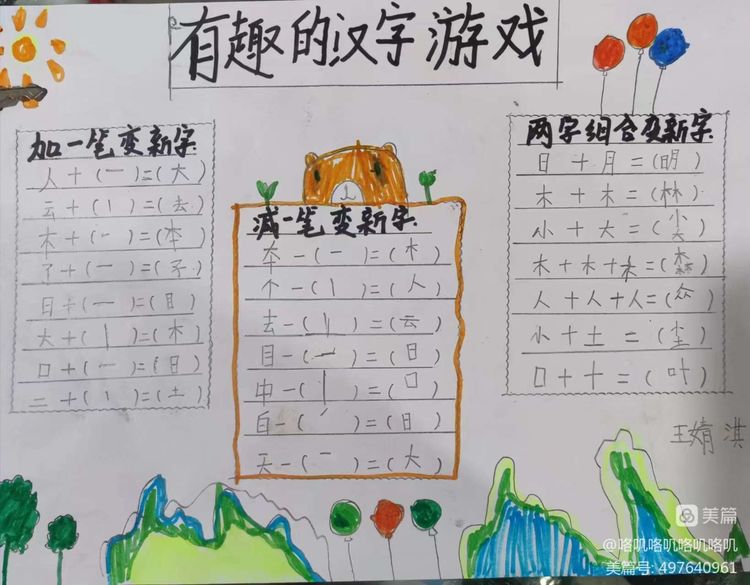 有趣的汉字游戏
加一笔变新字
人+(一)=(大)
云+(丨)=(去)
木+(一)=(本)
了+(一)=(子)
日+(一)=(目)
大+(丨)=(木)
口+(一)=(日)
二+(丨)=(土)
减一笔变新字
本-(一)=(木)
个-(丨)=(人)
去-(丨)=(云)
目-(一)=(日)
中-(丨)=(口)
自-(丿)=(目)
天-(一)=(大)
两字组合变新字
日+月=(明)
木+木=(林)
小+大=(尖)
木+木+木=(森)
人+人+人=(众)
小+土=(尘)
口+十=(叶)
王婧淇
美篇
@咯叽咯叽咯叽咯叽
美篇号: 497640961